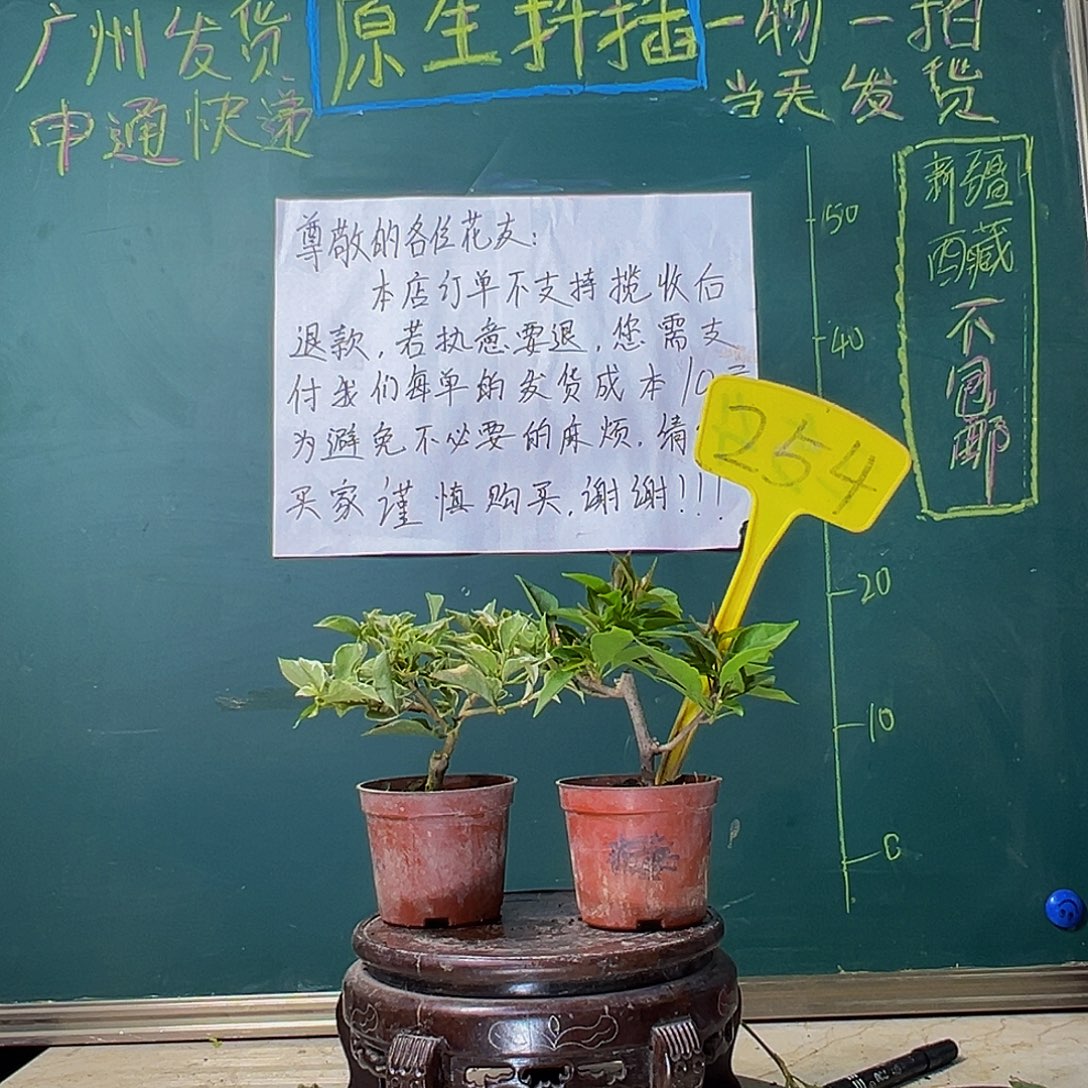 广州发货
申通快递
原生扦插
一物一拍
当天发货
新疆
西藏
不包邮
尊敬的各位花友：
本店订单不支持揽收后
退款，若执意要退，您需支
付我们每单的发货成本10元
为避免不必要的麻烦，请
买家谨慎购买，谢谢!!!
254
50
40
20
10
0